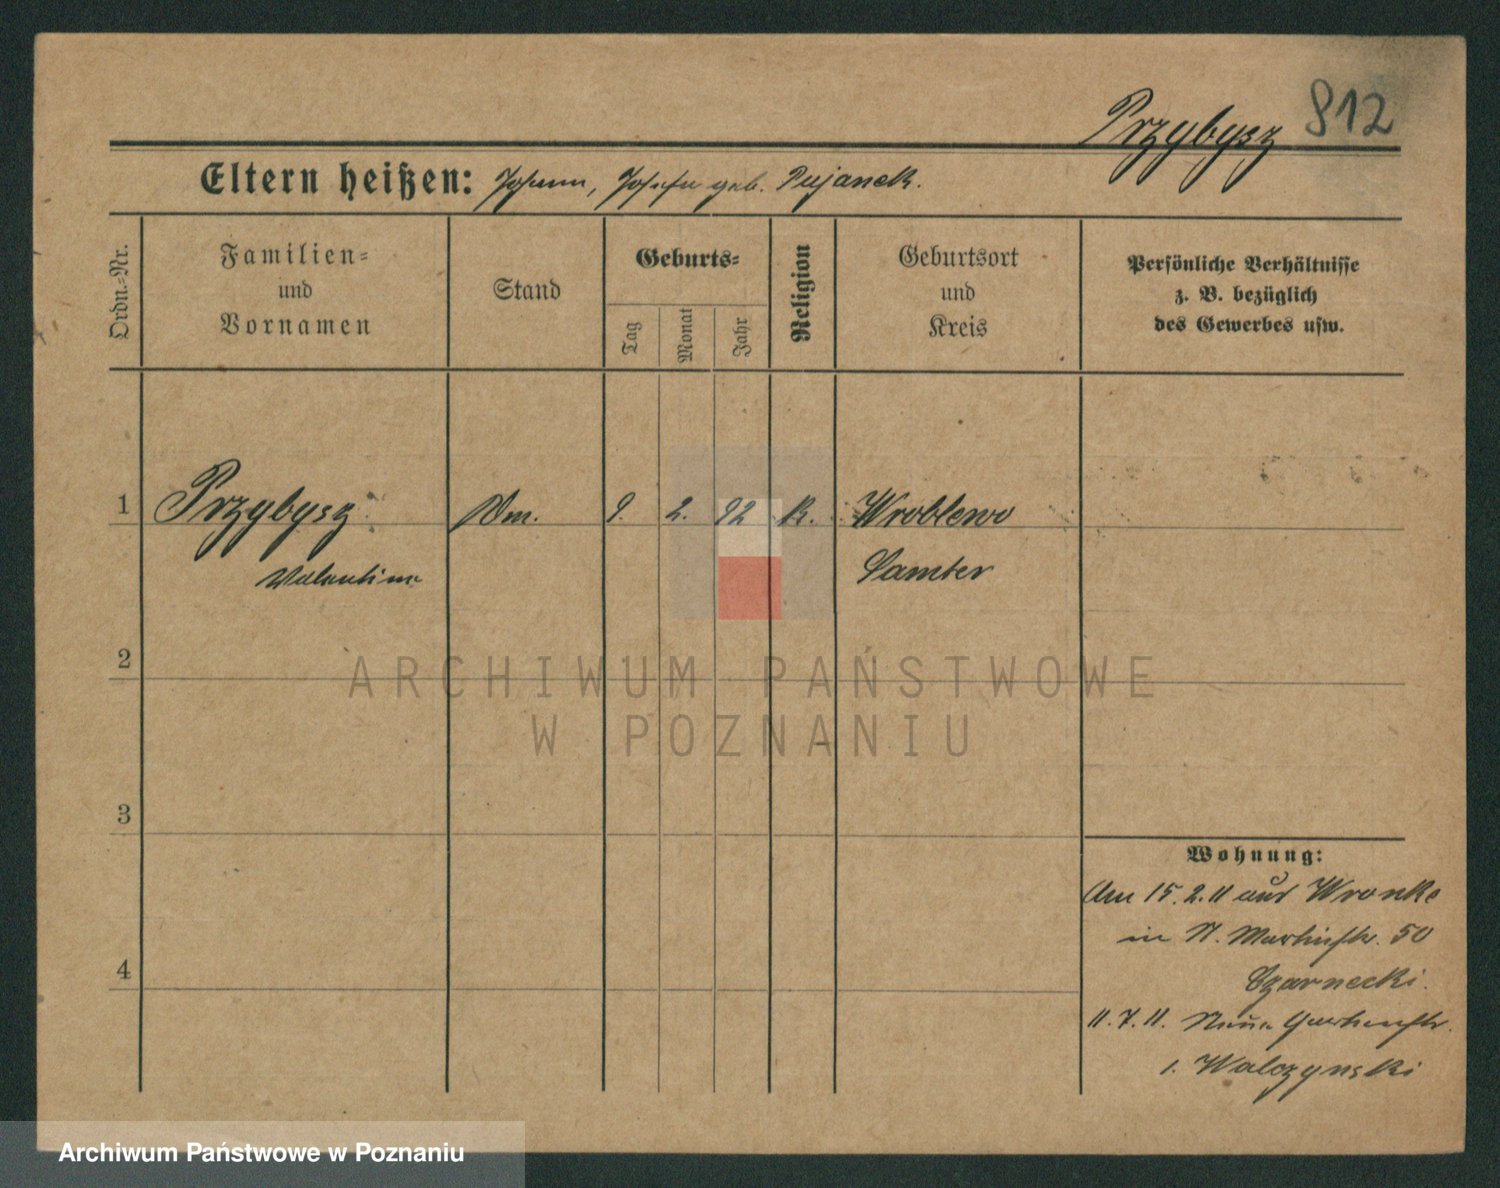 Przybysz 812
Eltern heißen: Johann, Josefa geb. Pujanek.
Ordn.=Nr.
Familien=
und
Vornamen
Stand
Geburts=
Tag
Monat
Jahr
Religion
Geburtsort
und
Kreis
Persönliche Verhältnisse
z. B. bezüglich
des Gewerbes usw.
1 Przybysz 9. 2. 92 k. Wroblewo
Valentine Samter
2
ARCHIWUM PAŃSTWOWE
W POZNANIU
3
Wohnung:
Am 15.2.11 aus Wronke
in St. Martinstr. 50
Czarnecki.
4
11.7.11. Neue Gartenstr.
1. Walczynski
Archiwum Państwowe w Poznaniu